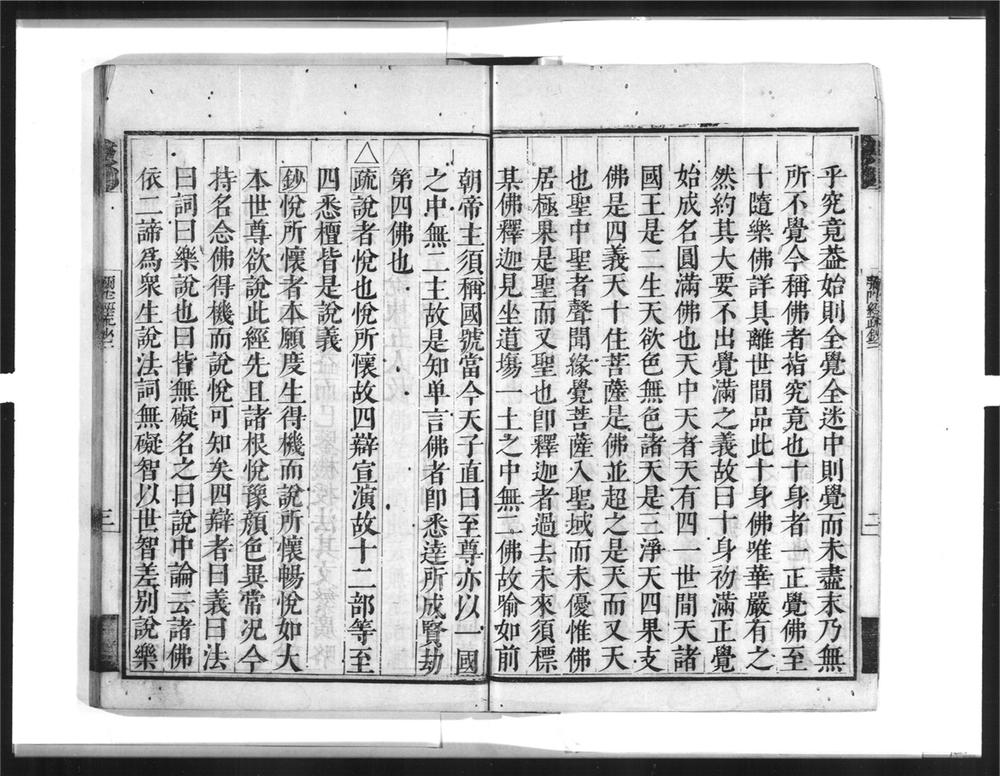 乎究竟葢始則全覺全迷中則覺而未盡末乃無
所不覺今稱佛者指究竟也十身者一正覺佛至
十隨樂佛詳具離世間品此十身佛唯華嚴有之
然約其大要不出覺滿之義故曰十身初滿正覺
始成名圓滿佛也天中天者天有四一世間天諸
國王是二生天欲色無色諸天是三淨天四果支
佛是四義天十住菩薩是佛並超之是天而又天
也聖中聖者聲聞緣覺菩薩入聖域而未優惟佛
居極果是聖而又聖也卽釋迦者過去未來須標
某佛釋迦見坐道塲一土之中無二佛故喻如前
朝帝主須稱國號當今天子直曰至尊亦以一國
之中無二主故是知单言佛者卽悉達所成賢劫
第四佛也
△疏說者悅也悅所懷故四辯宣演故十二部等至
四悉檀皆是說義
鈔悅所懷者本願度生得機而說所懷暢悅如大
本世尊欲說此經先且諸根悅豫顏色異常况今
持名念佛得機而說悅可知矣四辯者曰義曰法
曰詞曰樂說也曰皆無礙名之曰說中論云諸佛
依二諦爲衆生說法詞無礙智以世智差别說樂
三